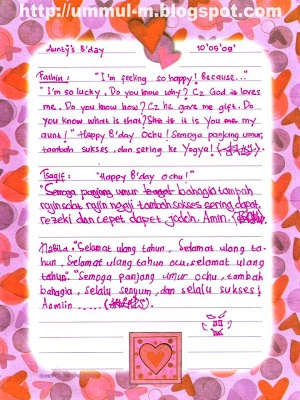 http://ummul-m.blogspot.com
Aunty's B'day 10'05'09'
Fathin : "I'm feeling so happy! Because..."
"I'm so lucky. Do you know why? Cz God is loves
me. Do you know how? Cz he gave me gift. Do
you know what is that? She is it is You my my
aunt!" Happy B'day Ochu! Semoga panjang umur,
tambah sukses, dan sering ke Yogya!
Tsaqif : "Happy B'day ochu!"
"Semoga panjang umur bahagia tambah
rajin solat rajin ngaji tambah sukses sering dapat
rezeki dan cepet dapet jodoh. Amin.
Nabila : "Selamat ulang tahun, Selamat ulang ta-
hun, Selamat ulang tahun ocu, selamat ulang
tahun." "Semoga panjang umur ochu, tambah
bahagia, selalu senyum, dan selalu sukses!
Aamiin .....